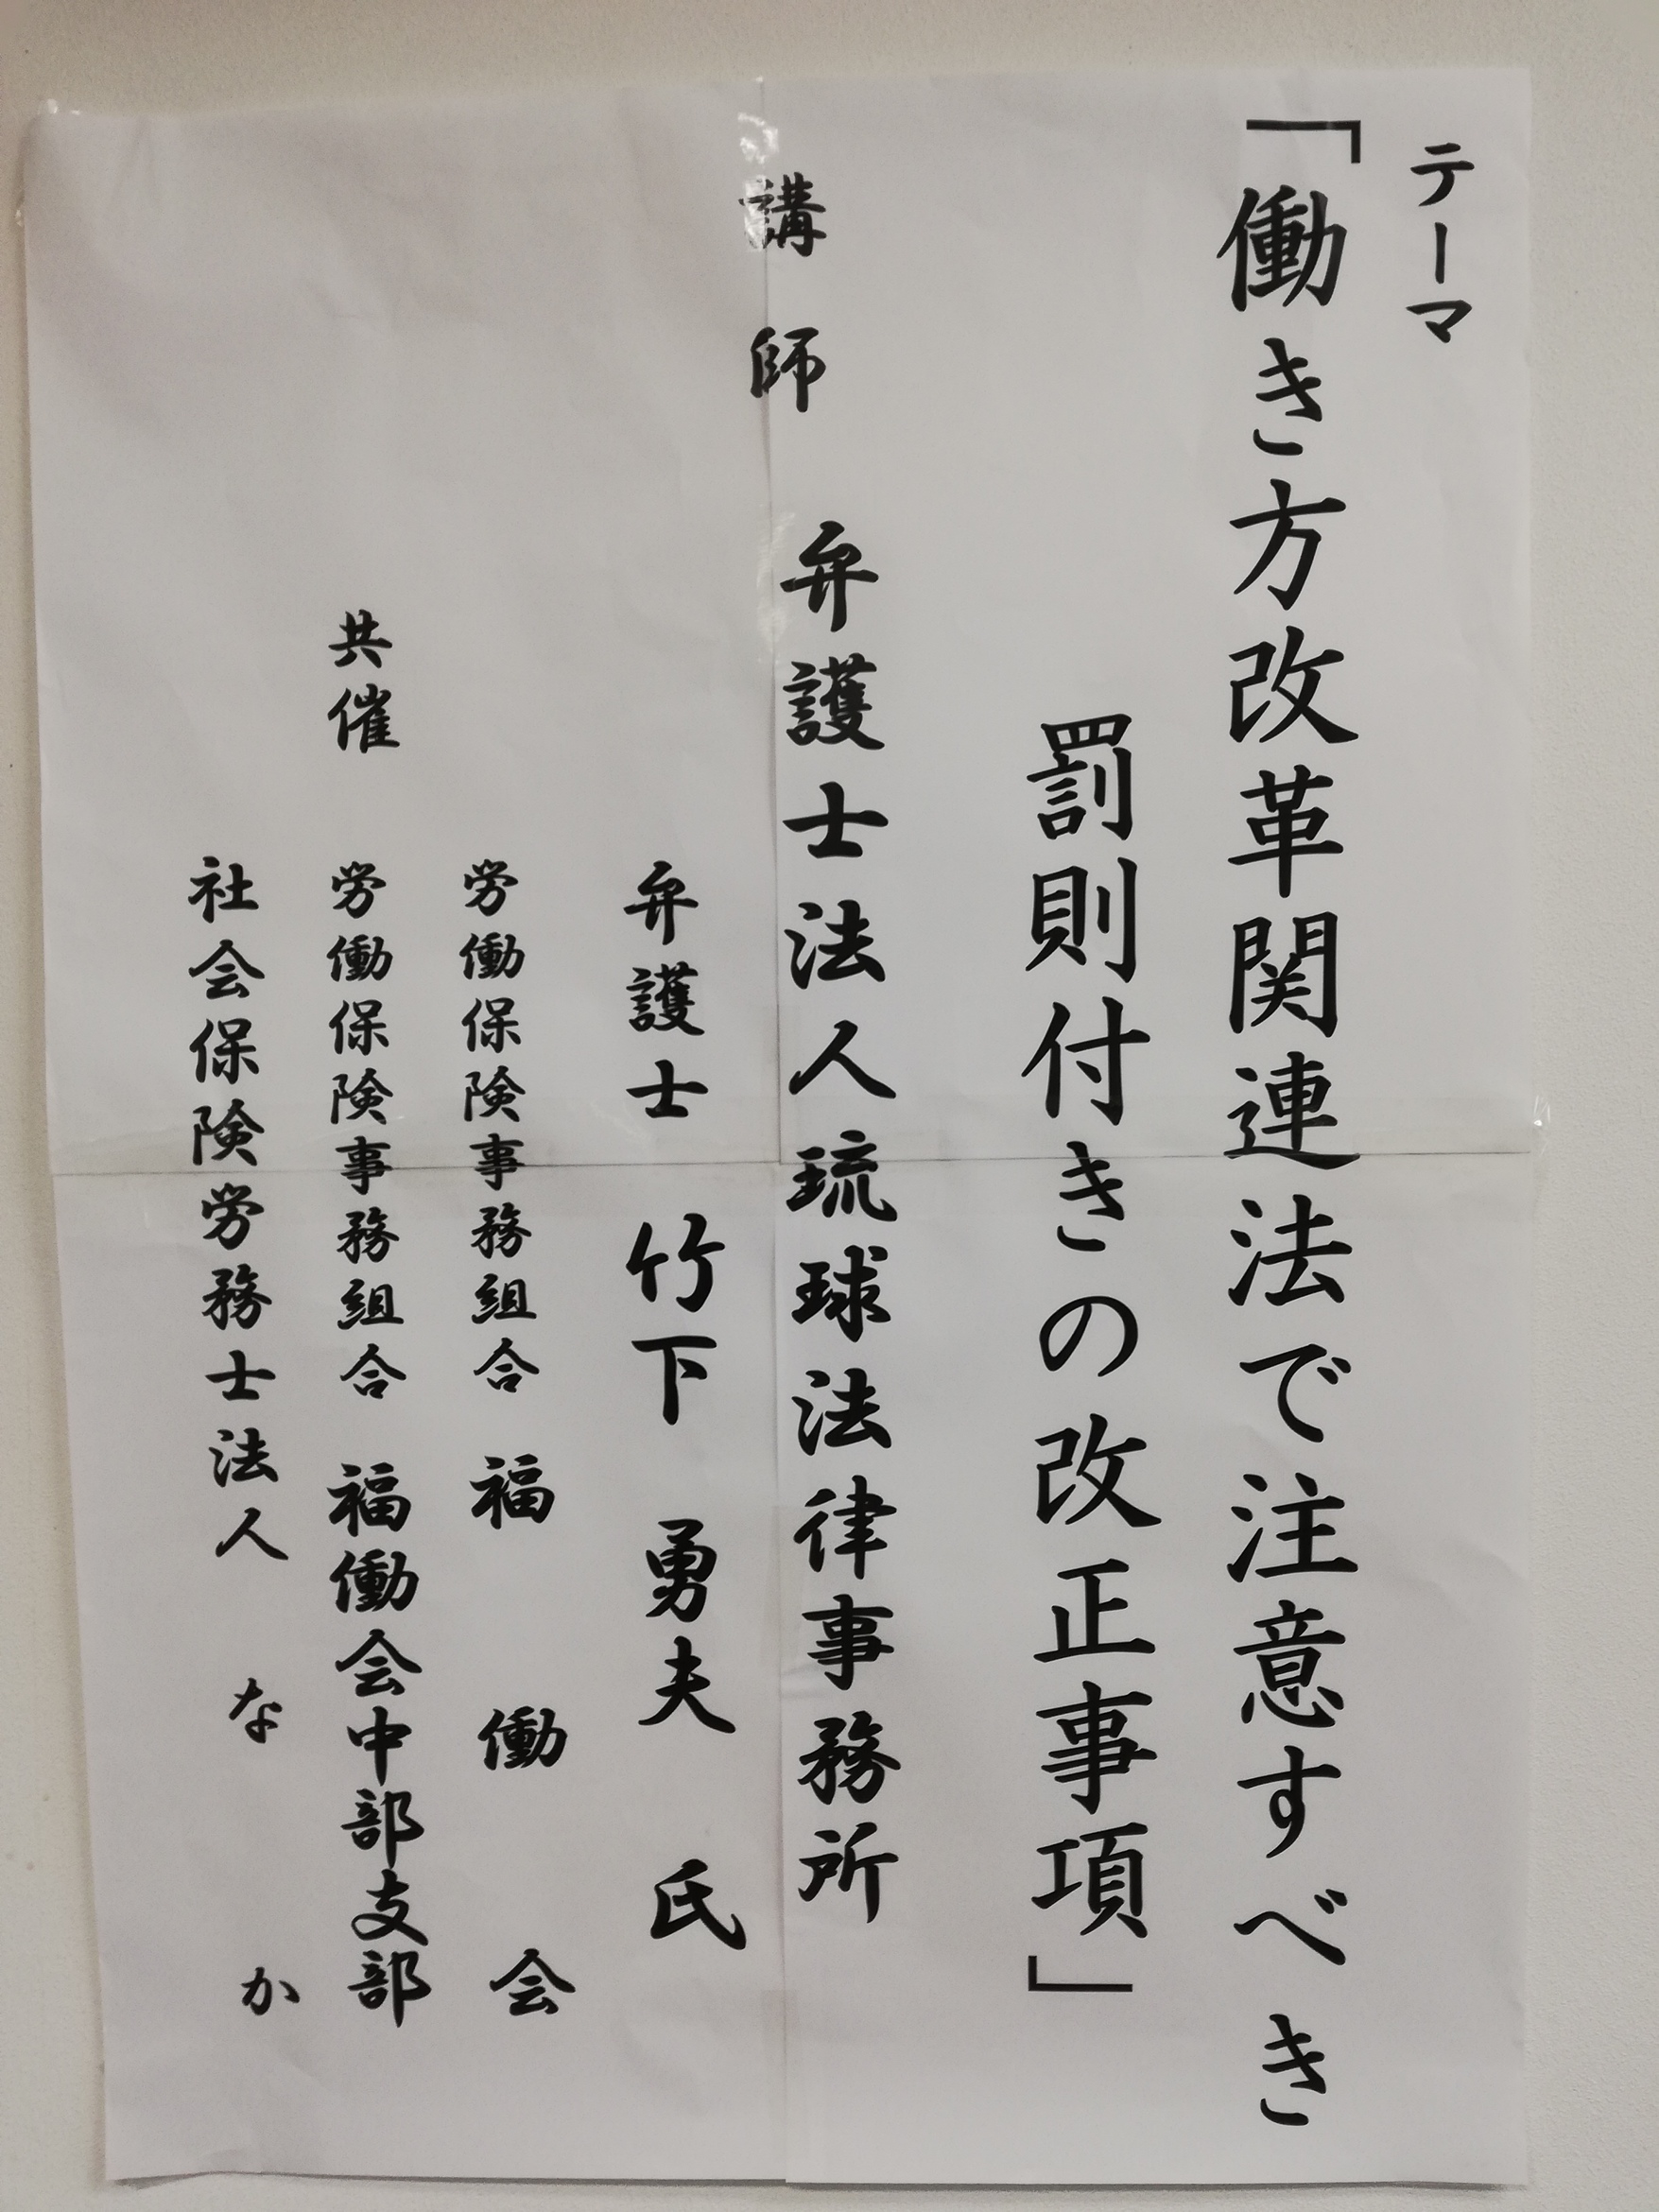 テーマ
「働き方改革関連法で注意すべき
罰則付きの改正事項」
講師 弁護士法人琉球法律事務所
弁護士 竹下 勇夫 氏
労働保険事務組合 福働会
共催 労働保険事務組合 福働会中部支部
社会保険労務士法人 なか